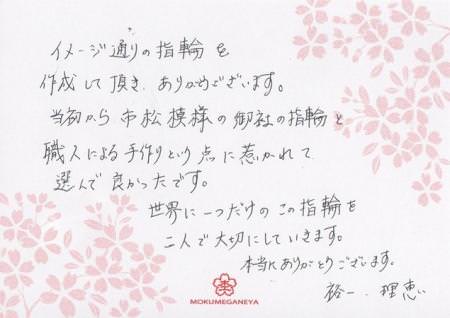 イメージ通りの指輪を
作成して頂き、ありがとうございます。
当初から市松模様の御社の指輪と
職人による手作りという点に惹かれて
選んで良かったです。
世界に一つだけのこの指輪を
二人で大切にしていきます。
本当にありがとうございます。
裕一、理恵
MOKUMEGANEYA